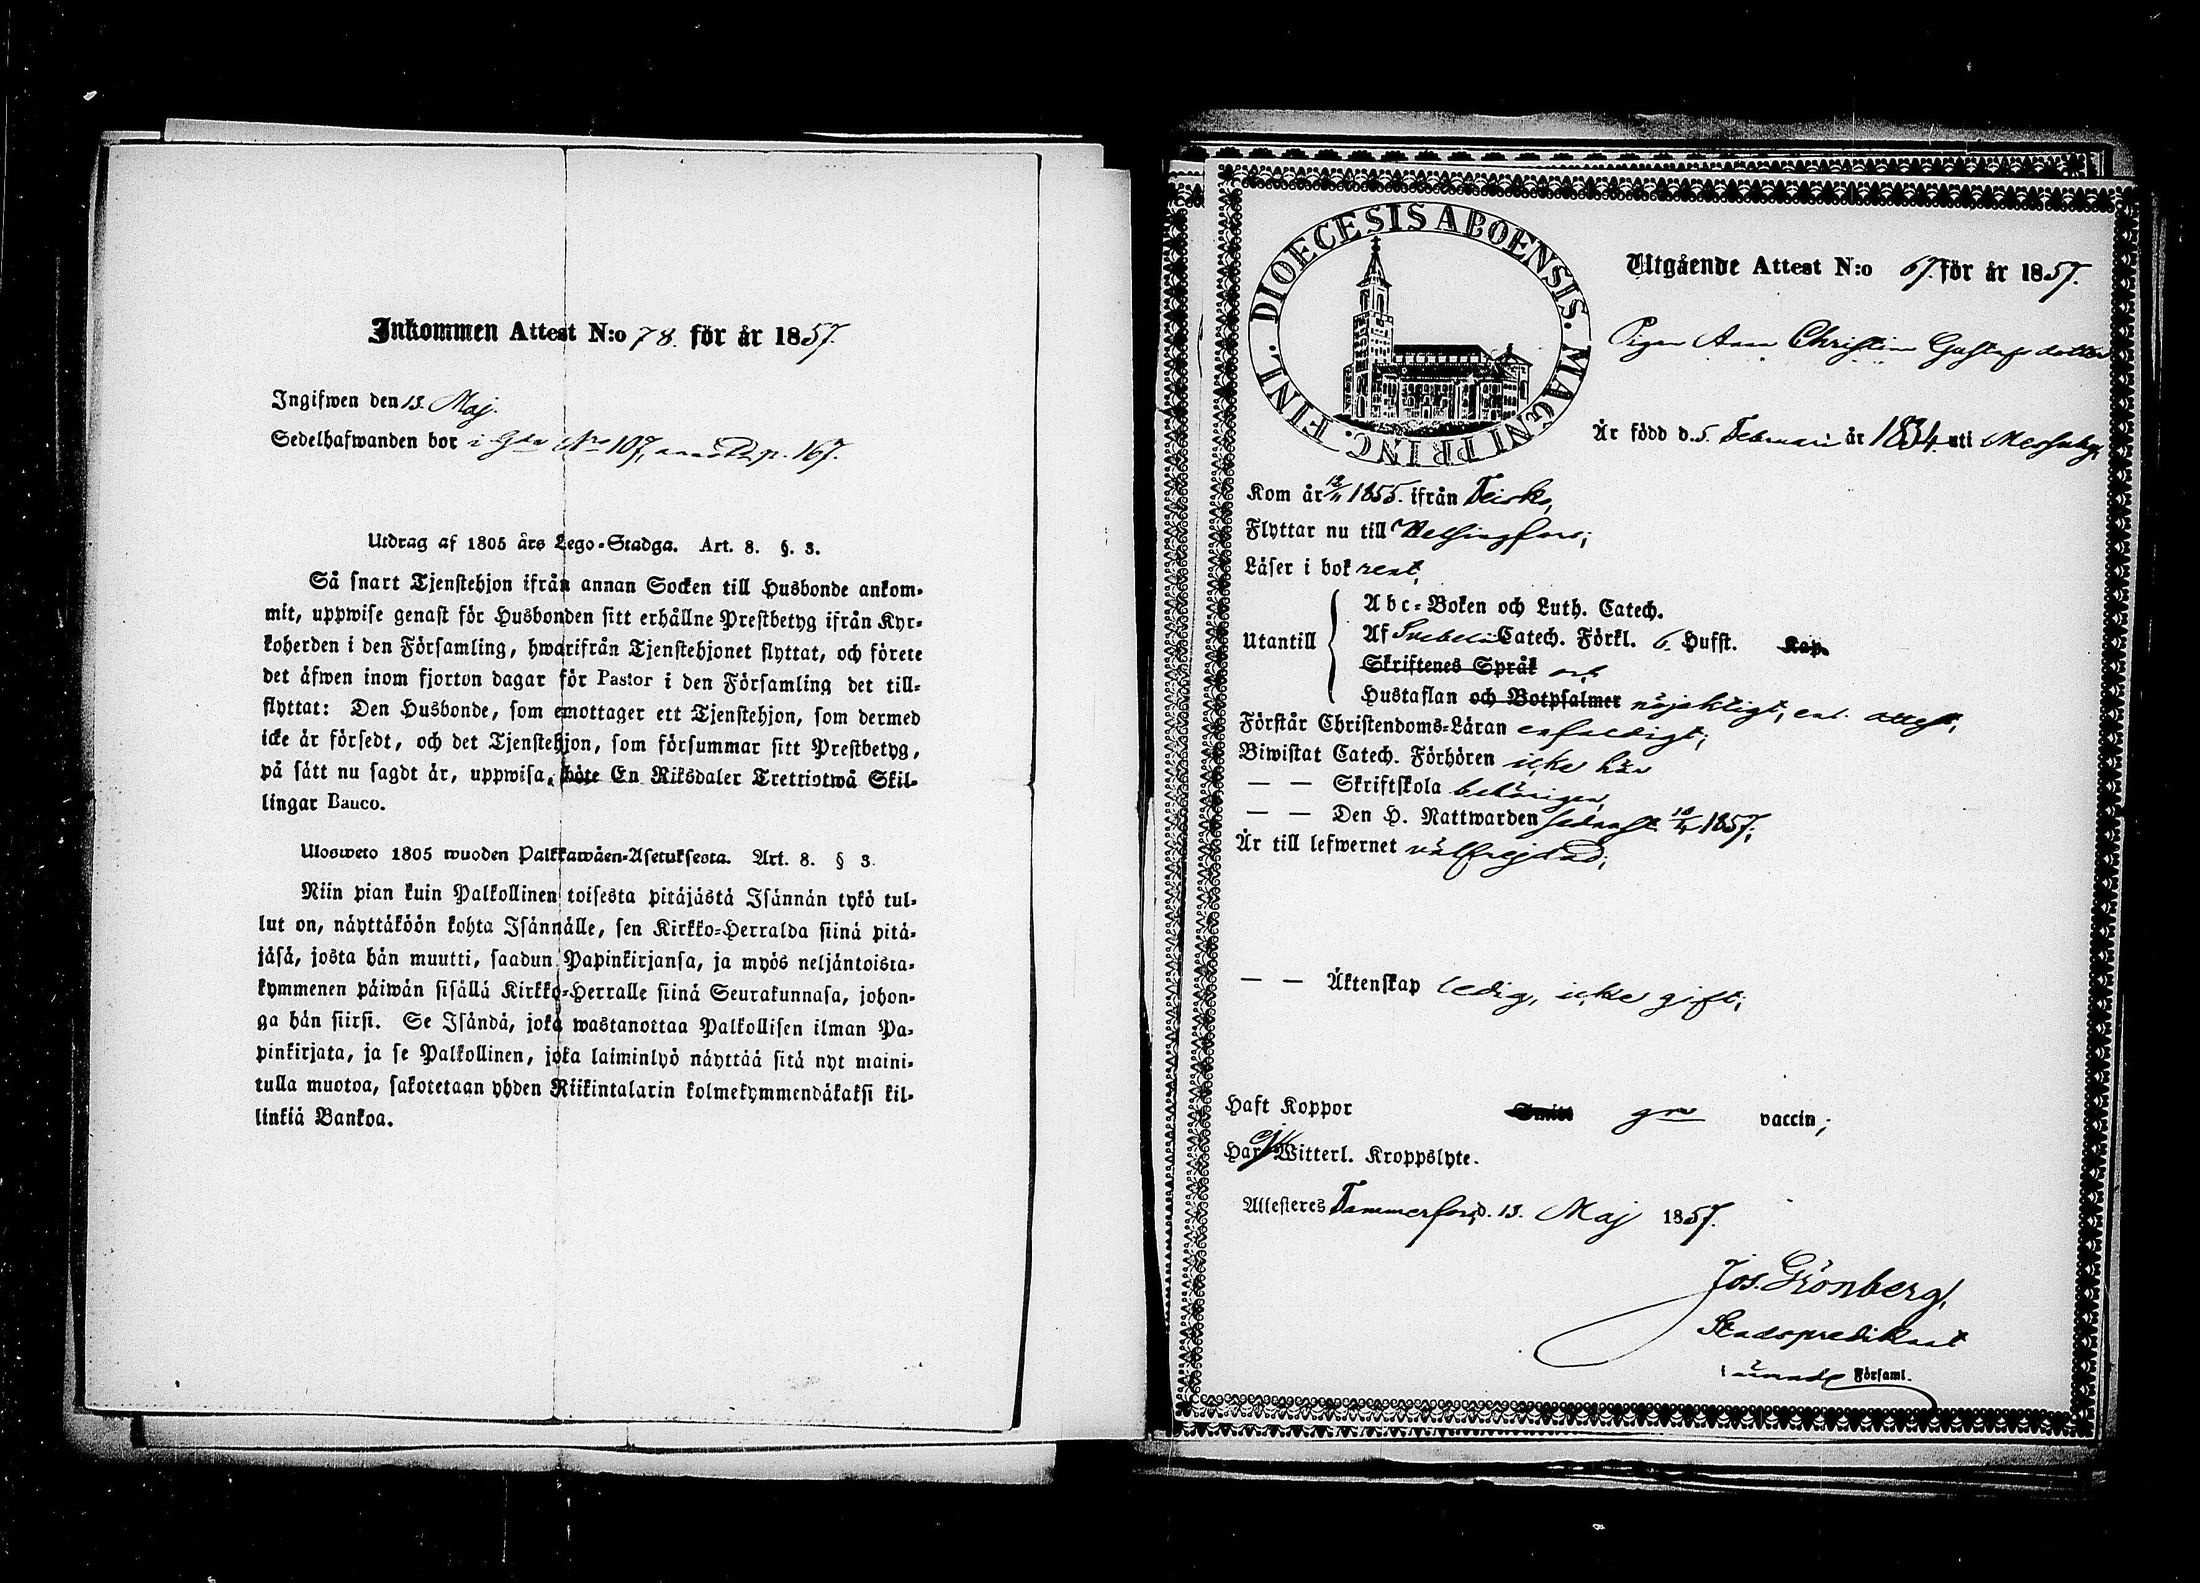 Inkommen Attest N:o 78. för år 1857.
Ingifwen den 13. Maj.
Sedelhafwanden bor i Gdn No 107, p. 167.
Utdrag af 1805 års Lego-Stadga. Art. 8. §. 3.
Så snart Tjenstehjon ifrån annan Socken till Husbonde ankom-
mit, uppwise genast för Husbonden sitt erhållne Prestbetyg ifrån Kyr-
koherden i den Församling, hwarifrån Tjenstehjonet flyttat, och förete
det äfwen inom fjorton dagar för Pastor i den Församling det till-
flyttat: Den Husbonde, som emottager ett Tjenstehjon, som dermed
icke är försedt, och det Tjenstehjon, som försummar sitt Prestbetyg,
på sätt nu sagdt är, uppwisa, böte En Riksdaler Trettiotwå Skil-
lingar Banco.
Ulosweto 1805 wuoden Palkkawäen-Asetuksesta. Art. 8. § 3.
Niin pian kuin Palkollinen toisesta pitäjästä Isännän tykö tul-
lut on, näyttäköön kohta Isännälle, sen Kirkko-Herralda siinä pitä-
jäsä, josta hän muutti, saadun Papinkirjansa, ja myös neljäntoista-
kymmenen päiwän sisällä Kirkko-Herralle siinä Seurakunnasa, johon-
ga hän siirsi. Se Isändä, joka wastanottaa Palkollisen ilman Pa-
pinkirjata, ja se Palkollinen, joka laiminlyö näyttää sitä nyt maini-
tulla muotoa, sakotetaan yhden Riikintalarin kolmekymmendäkaksi kil-
linkiä Bankoa.
DIOECESIS ABOENSIS. MAGNI PRINC. FINL.
Utgående Attest N:o 67. för år 1857.
Pigan Anna Christina Gustafsdotter
Är född d. 5. Februari år 1834. uti Messuby,
Kom år 12/11 1855. ifrån Teisko,
Flyttar nu till Helsingfors;
Läser i bok rent,
Utantill
Abc-Boken och Luth. Catech.
Af Svebelii Catech. Förkl. 6. Hufst. Kap.
Skriftenes Språk och
Hustaflan och Botpsalmer nöjaktigt, enl. attest,
Förstår Christendoms-Läran enfaldigt;
Biwistat Catech. Förhören icke här
— — Skriftskola behörigen,
— — Den H. Nattwarden sednast 10/4 1857;
Är till lefwernet välfrejdad;
— — Äktenskap ledig, icke gift;
Haft Koppor gm vaccin;
Har ej Witterl. Kroppslyte.
Attesteres Tammerfors, d. 13. Maj 1857.
Jos. Grönberg,
Stadspredikant
i Församl.